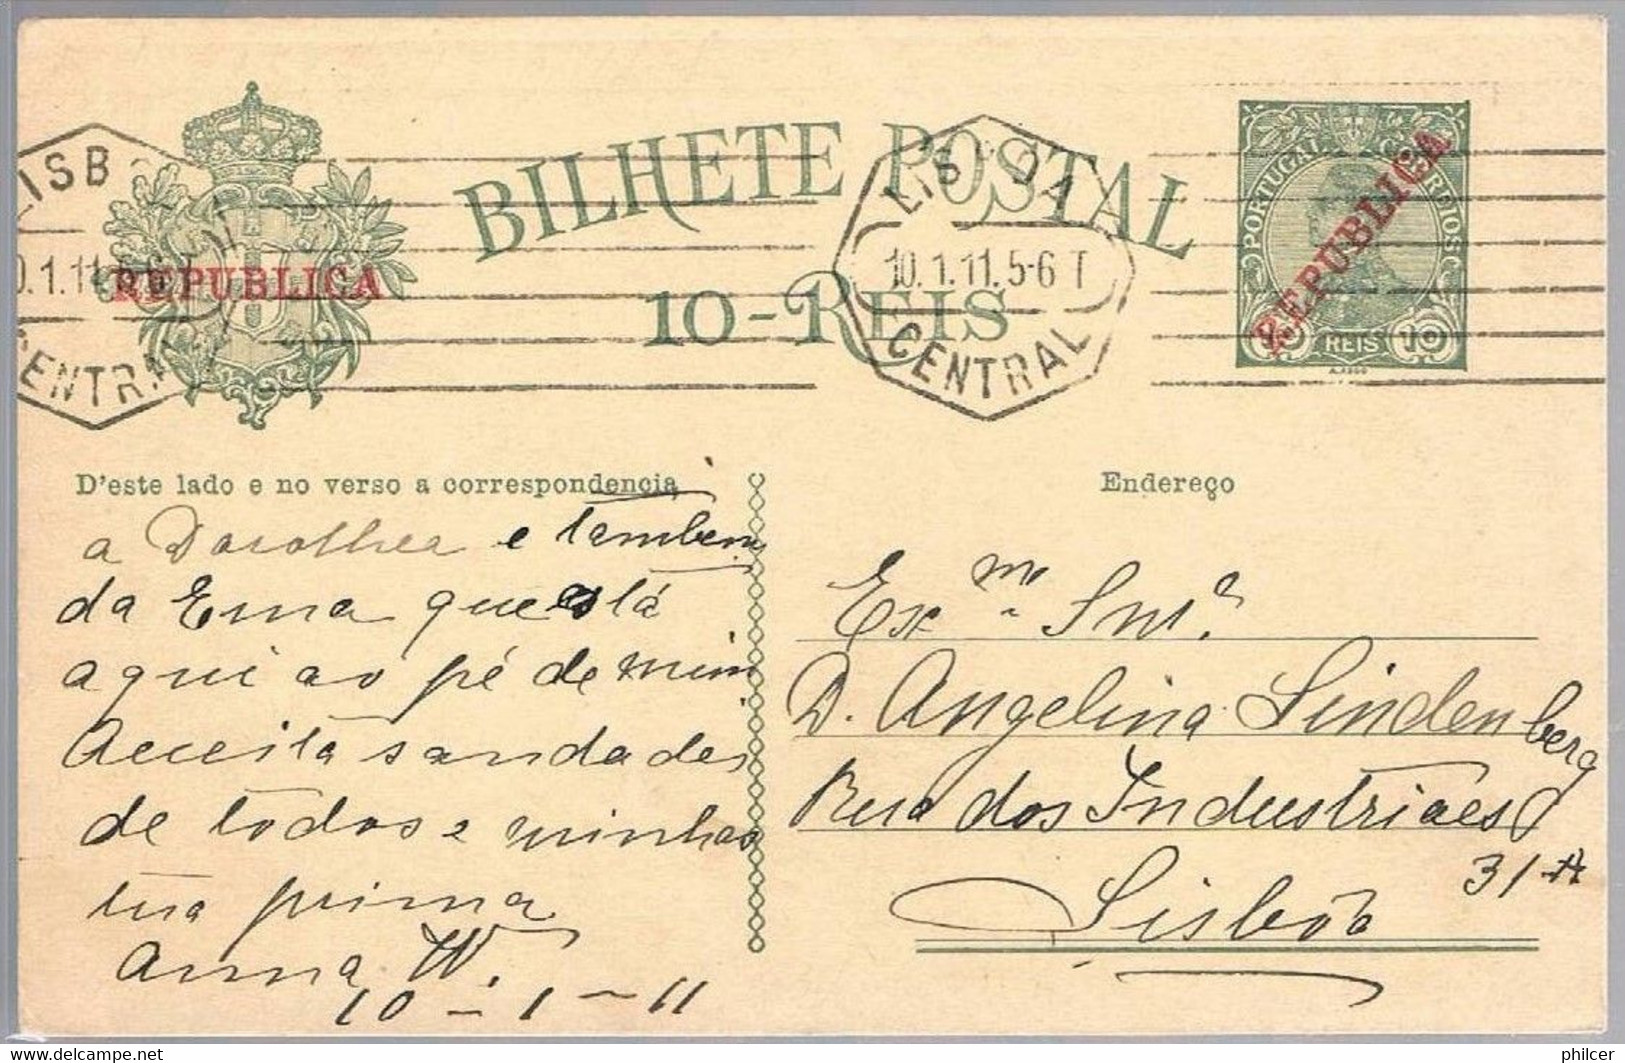 BILHETE POSTAL
10-REIS
REPUBLICA
LISB
0.1.11
CENTRA
LISBOA
10.1.11.5-6 T
CENTRAL
PORTUGAL CORREIOS
REPUBLICA
10 REIS 10
D'este lado e no verso a correspondencia
a Dorothea e tambem
da Ema que está
aqui ao pé de mim
Acceita saudades
de todos e minhas
tua prima
Anna W.
10 - 1 - 11
Endereço
Exma Snra.
D. Angelina Lindenberg
Rua dos Industriaes
31-A
Lisbôa
philcer